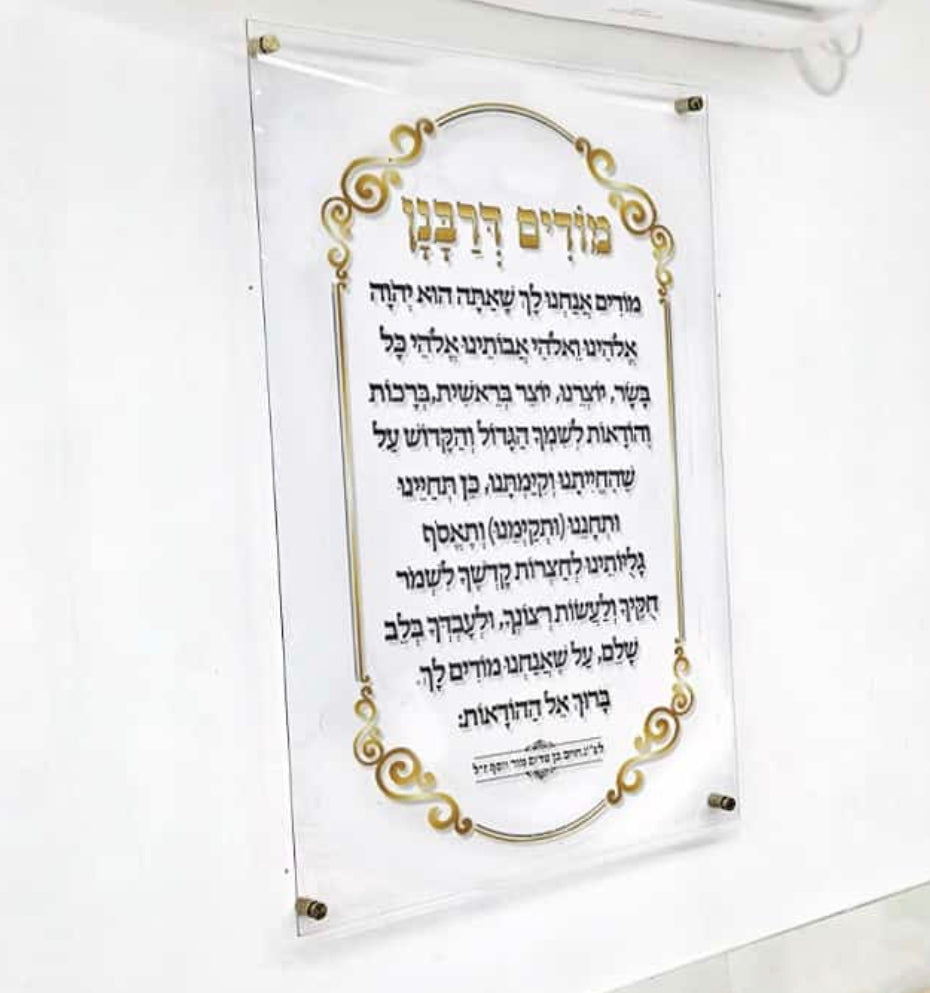 מוֹדִים דְּרַבָּנָן
מוֹדִים אֲנַחְנוּ לָךְ שָׁאַתָּה הוּא יְהֹוָה
אֱלֹהֵינוּ וֵאלֹהֵי אֲבוֹתֵינוּ אֱלֹהֵי כָּל
בָּשָׂר, יוֹצְרֵנוּ, יוֹצֵר בְּרֵאשִׁית,בְּרָכוֹת
וְהוֹדָאוֹת לְשִׁמְךָ הַגָּדוֹל וְהַקָּדוֹשׁ עַל
שֶׁהֶחֱיִיתָנוּ וְקִיַּמְתָּנוּ, כֵּן תְּחַיֵּינוּ
וּתְחָנֵּנוּ (וּתְקַיְּמֵנוּ) וְתֶאֱסֹף
גָּלֻיּוֹתֵינוּ לְחַצְרוֹת קָדְשֶׁךָ לִשְׁמֹר
חֻקֶּיךָ וְלַעֲשׂוֹת רְצוֹנֶךָ, וּלְעָבְדְּךָ בְּלֵבָב
שָׁלֵם, עַל שֶׁאֲנַחְנוּ מוֹדִים לָךְ.
בָּרוּךְ אֵל הַהוֹדָאוֹת:
לע"נ חיים בן שלום מור יוסף ז"ל